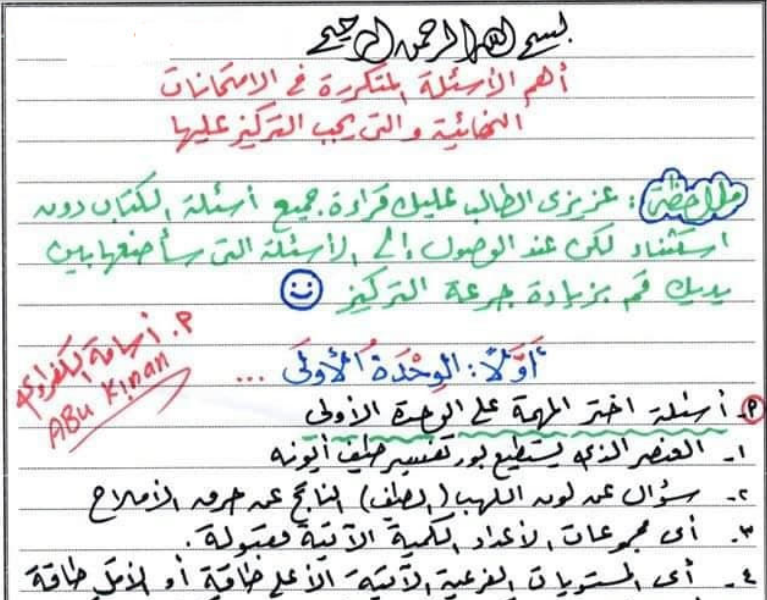 بسم الله الرحمن الرحيم
أهم الأسئلة المتكررة في الامتحانات
النهائية والتي يجب التركيز عليها
ملاحظة: عزيزي الطالب عليك قراءة جميع أسئلة الكتاب دون
استثناء لكن عند الوصول إلى الأسئلة التي سأضعها بين
يديك قم بزيادة جرعة التركيز
م. أسامة الكفراوي
ABU Kinan
أَوَّلاً: الوِحْدَةُ الأُولَى ...
م. أسئلة اختر المهمة على الوحدة الأولى
١- العنصر الذي يستطيع بور تفسير طيف أيونه
٢- سؤال عن لون اللهب (الطيف) الناتج عن حرق الأملاح
٣- أي مجموعات الأعداد الكمية الآتية مقبولة.
٤- أي المستويات الفرعية الآتية الأعلى طاقة أو الأقل طاقة